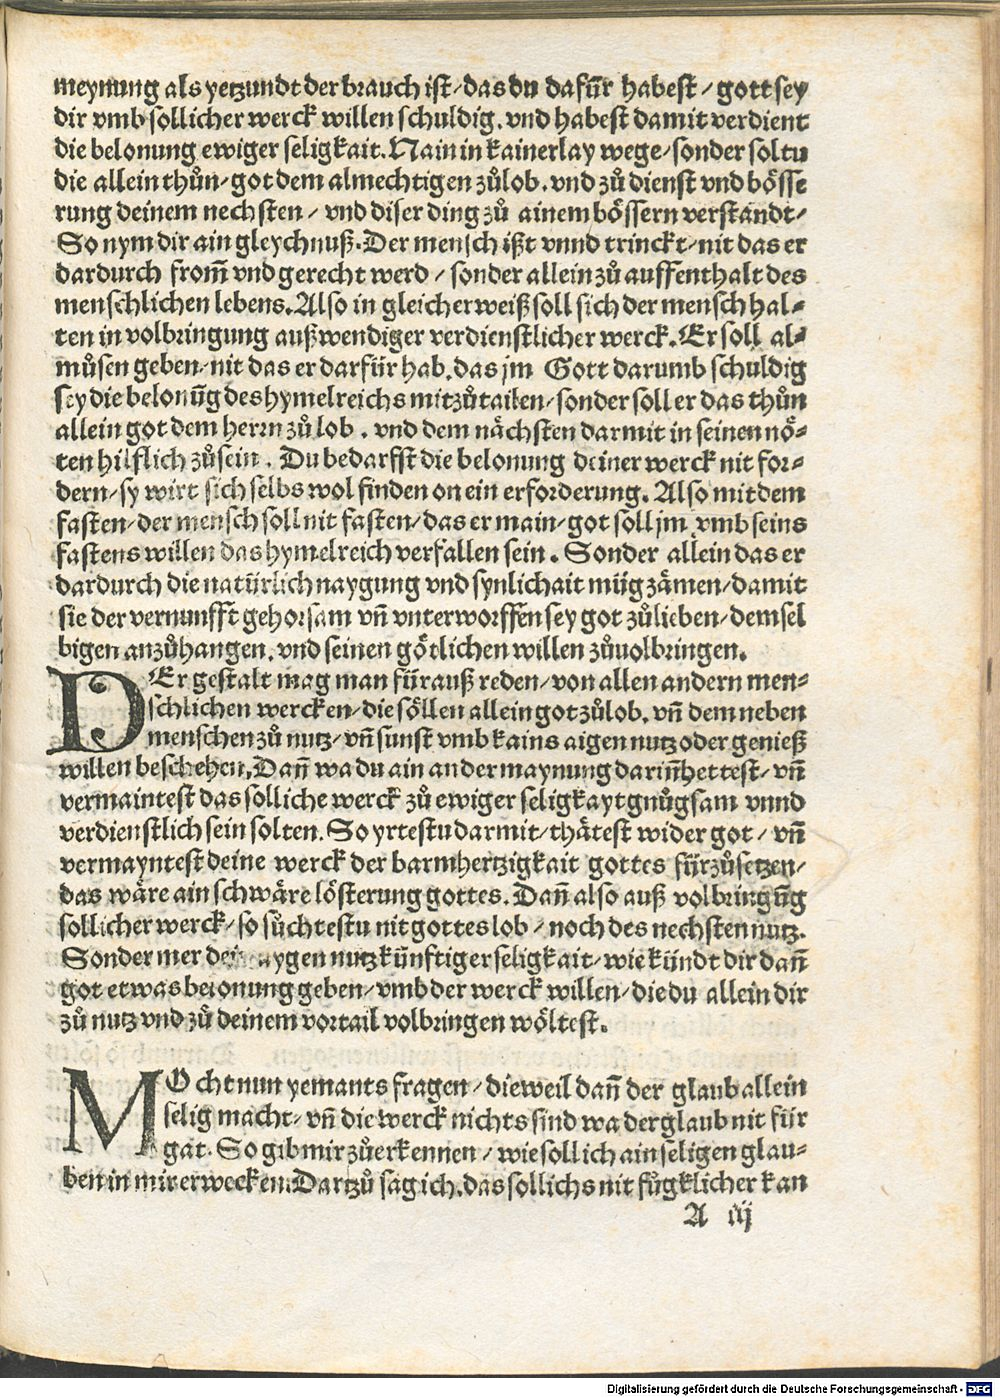 meynung als yetzundt der brauch ist / das du dafür habest / gott sey
dir vmb sollicher werck willen schuldig. vnd habest damit verdient
die belonung ewiger seligkait. Nain in kainerlay wege / sonder soltu
die allein thůn / got dem almechtigen zů lob. vnd zů dienst vnd bösse
rung deinem nechsten / vnd diser ding zů ainem bössern verstandt /
So nym dir ain gleychnuß. Der mensch ißt vnnd trinckt / nit das er
dardurch from̃ vnd gerecht werd / sonder allein zů auffenthalt des
menschlichen lebens. Also in gleicher weiß soll sich der mensch hal⸗
ten in volbringung außwendiger verdienstlicher werck. Er soll al⸗
můsen geben / nit das er darfür hab. das jm Gott darumb schuldig
sey die belonũg des hymelreichs mitzůtailen / sonder soll er das thůn
allein got dem herrn zů lob. vnd dem nächsten darmit in seinen nö⸗
ten hilflich zůsein. Du bedarfst die belonung deiner werck nit for⸗
dern / sy wirt sich selbs wol finden on ein erforderung. Also mit dem
fasten / der mensch soll nit fasten / das er main / got soll jm vmb seins
fastens willen das hymelreich verfallen sein. Sonder allein das er
dardurch die natürlich naygung vnd synlichait müg zämen / damit
sie der vernunfft gehorsam vñ vnterworffen sey got zůlieben / demsel
bigen anzůhangen. vnd seinen götlichen willen zůuolbringen.
DEr gestalt mag man für auß reden / von allen andern men⸗
schlichen wercken / die söllen allein got zůlob. vñ dem neben
menschen zů nutz / vñ sunst vmb kains aigen nutz oder genieß
willen beschehen. Dañ wa du ain ander maynung dariñ hettest / vñ
vermaintest das solliche werck zů ewiger seligkayt gnůgsam vnnd
verdienstlich sein solten. So yrtestu darmit / thätest wider got / vñ
vermayntest deine werck der barmhertzigkait gottes fürzůsetzen /
das wäre ain schwäre lösterung gottes. Dañ also auß volbringũg
sollicher werck / so sůchtestu nit gottes lob / noch des nechsten nutz.
Sonder mer dein aygen nutz künftiger seligkait / wie kündt dir dañ
got etwas belonung geben / vmb der werck willen / die du allein dir
zů nutz vnd zů deinem vortail volbringen wöltest.
MOcht nun yemants fragen / dieweil dañ der glaub allein
selig macht / vñ die werck nichts sind wa der glaub nit für
gat. So gib mir zůerkennen / wie soll ich ain seligen glau⸗
ben in mir erwecken. Dartzů sag ich. das sollichs nit fůgklicher kan
A iij
Digitalisierung gefördert durch die Deutsche Forschungsgemeinschaft - DFG